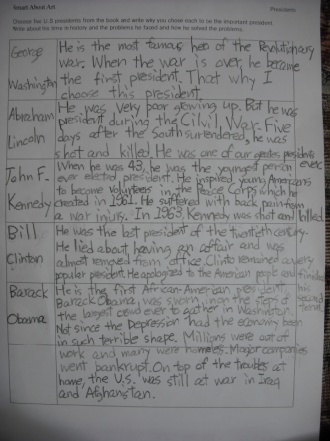 Smart About Art
Presidents
Choose five U.S presidents from the book and write why you chose each to be the important president.
Write about his time in history and the problems he faced and how he solved the problems.
George
Washington
He is the most famous hero of the Revolutionary
war. When the war is over, he became
the first president. That why I
choose this president.
Abraham
Lincoln
He was very poor growing up. But he was
president during the Cilvil War. Five
days after the South surrendered, he was
shot and killed. He was one of our greates presidents
John F.
Kennedy
When he was 43, he was the youngest person ever
ever elected president. He inspired young Americans
to become volunteers in the Peace Corps which he
created in 1961. He suffered with back pain from
a war injury. In 1963, Kennedy was shot and killed.
Bill
Clinton
He was the last president of the twentieth century.
He lied about having an affair and was
almost removed from office. Clinto remained a very
popular president. He apologized to the American people and finished
his
second
term.
Barack
Obama
He is the first African-American president.
Barack Obama, was sworn in on the steps of
the largest crowd ever to gather in Washington.
Not since the Depression had the economy been
in such terrible shape. Millions were out of
work and many were homeles. Major companies
went pankrupt. On top of the troubles at
home, the U.S. was still at war in Iraq
and Afghanistan.